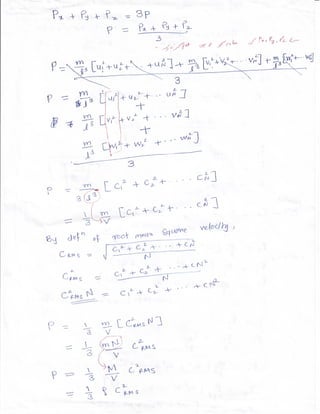 Px + Py + Pz = 3P
P = Px + Py + Pz / 3
P = m/l³ [u₁² + u₂² + ... + uN²] + m/l³ [v₁² + v₂² + ... vN²] + m/l³ [w₁² + ... wN²] / 3
P = m/l³ [u₁² + u₂² + ... uN²]
+
m/l³ [v₁² + v₂² + ... vN²]
+
m/l³ [w₁² + w₂² + ... wN²]
3
P = m/3(l³) [C₁² + C₂² + ... CN²]
= 1/3 m/V [C₁² + C₂² + ... CN²]
By defⁿ of root mean square velocity,
CRMS = √(C₁² + C₂² + ... + CN² / N)
C²RMS = C₁² + C₂² + ... + CN² / N
C²RMS N = C₁² + C₂² + ... + CN²
P = 1/3 m/V [C²RMS N]
= 1/3 mN/V C²RMS
P = 1/3 M/V C²RMS
= 1/3 ρ C²RMS